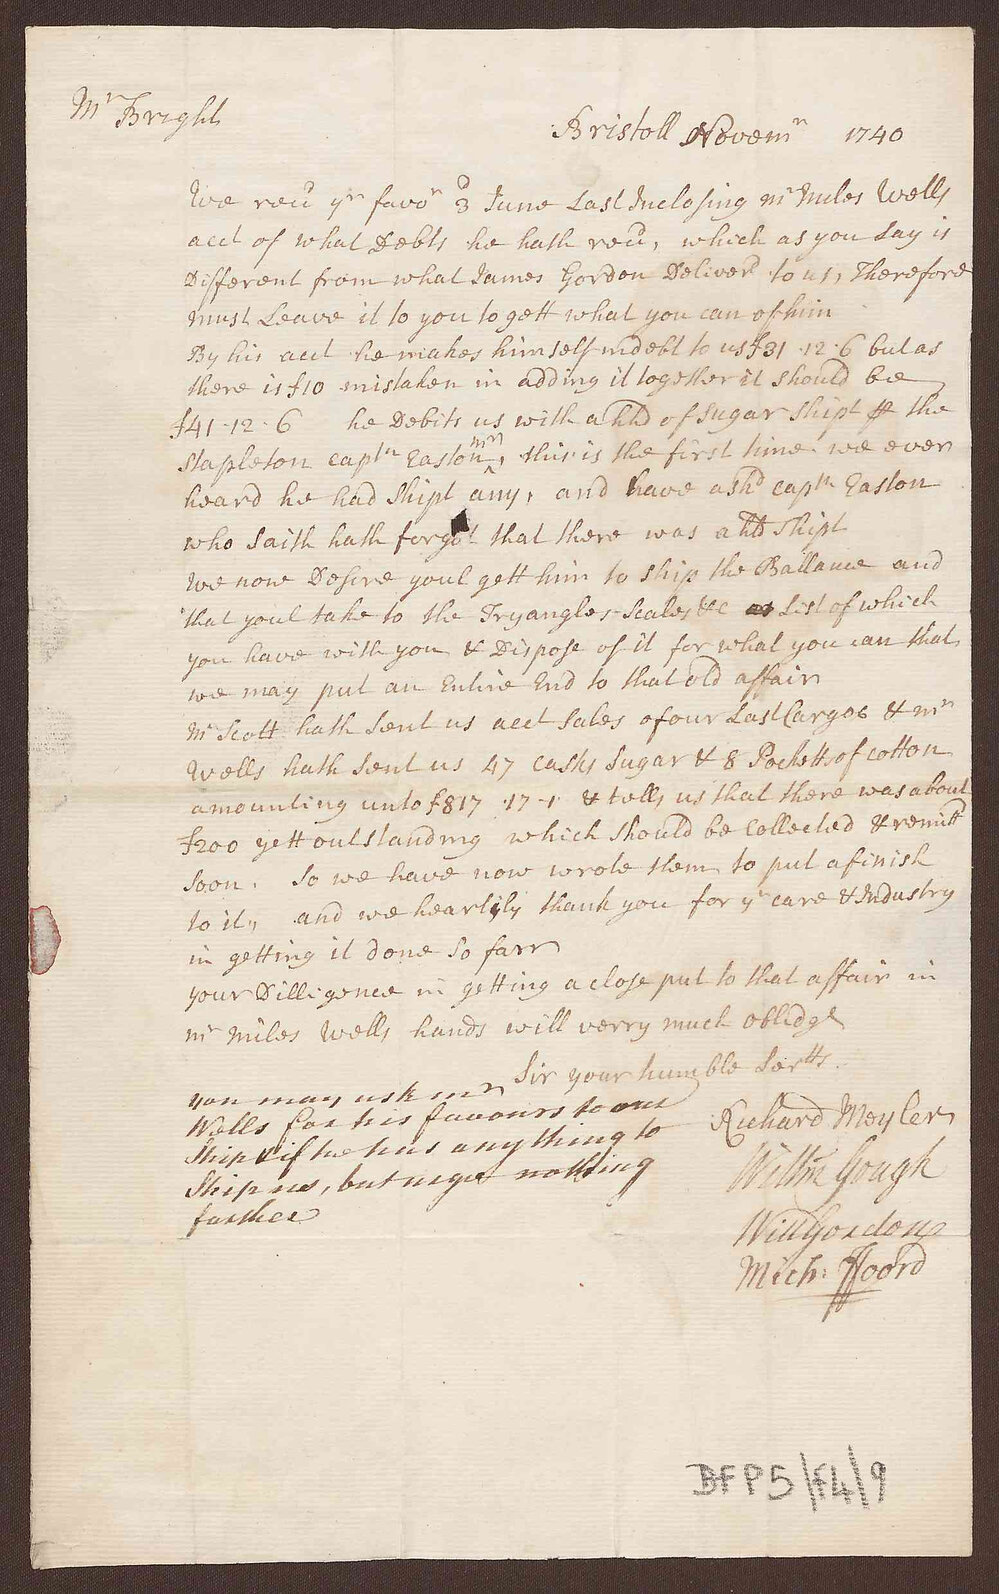 Mr Bright
Bristoll Novemr 1740
We recd yr favor 3d June Last Inclosing mr Miles Wells
acct of what Debts he hath recd, which as you Say is
Different from what James Gordon Deliverd to us, Therefore
must Leave it to you to gett what you can of him
By his acct he makes himself indebt to us £31-12-6 but as
there is £10 mistaken in adding it together it should be
£41-12-6 he Debits us with a hhd of Sugar Shipt the
Stapleton captn Easton, this is the first time we ever
heard he had Shipt any, and have askd captn Easton
who Saith hath forgot that there was a hhd Shipt
We now Desire youl gett him to Ship the Ballance and
that youl take to the Tryangles Scales &c List of which
you have with you & Dispose of it for what you can that
we may put an Entire End to that old affair
Mr Scott hath Sent us acct Sales of our Last Cargoe & mr
Wells hath Sent us 47 casks Sugar & 8 Pocketts of cotton
amounting unto £817-17-1 & tells us that there was about
£200 yett outstanding which should be collected & remittd
Soon. So we have now wrote them to put a finish
to it, and we heartily thank you for yr care & Industry
in getting it done So farr
your Dilligence in getting a close put to that affair in
mr Miles Wells hands will verry much oblidge
Sir your humble Sertts
you may ask mr
Wells for his favours to our
Ship if he has any thing to
Ship us, but urge nothing
farther
Richard Meyler
Willm Gough
Will Gordon
Mich: Ffoord
BFP5/f4/9